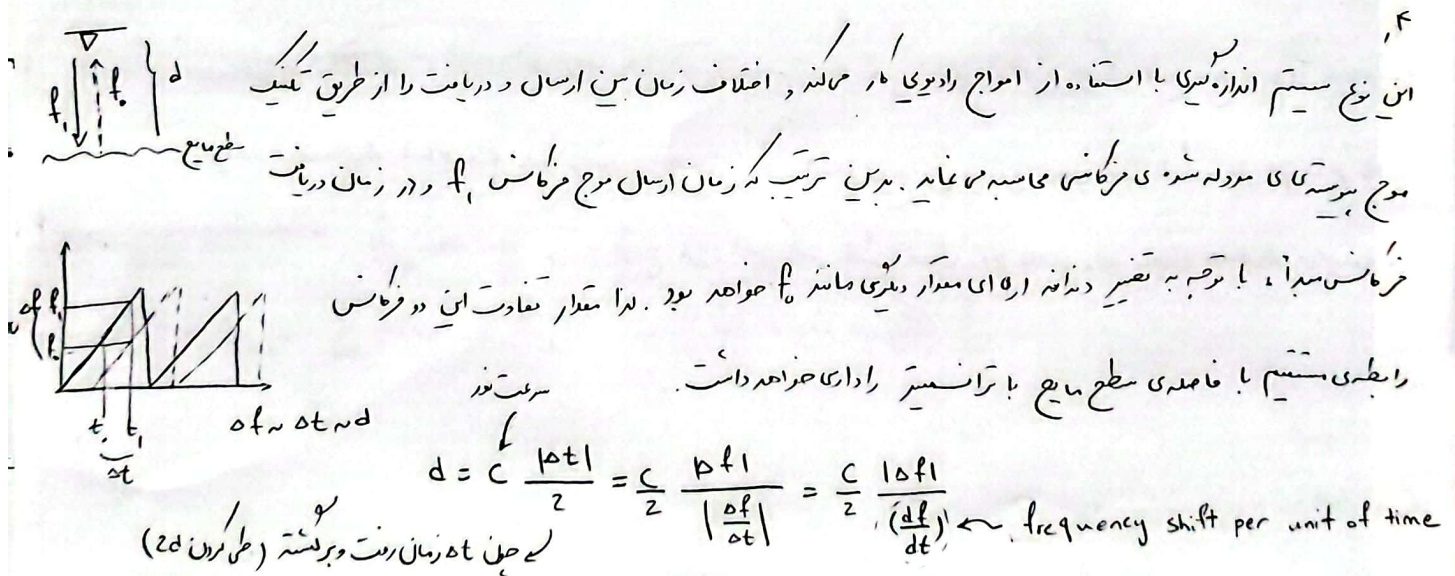 ۴.
این نوع سیستم اندازه‌گیری با استفاده از امواج رادیویی کار می‌کند و اختلاف زمان بین ارسال و دریافت را از طریق تکنیک
موج پیوسته‌ی مدوله شده‌ی فرکانسی محاسبه می‌نماید. بدین ترتیب که زمان ارسال موج فرکانس f₁ و در زمان دریافت
فرکانس مبدأ، با توجه به تغییر دندانه اره‌ای مقدار دیگری مانند f₀ خواهد بود. لذا مقدار تفاوت این دو فرکانس
رابطه‌ی مستقیم با فاصله‌ی سطح مایع با ترانسمیتر راداری خواهد داشت.
f₁ f₀ d
سطح مایع
Δf f₁
f₀
t₀ t₁
Δt
Δf ~ Δt ~ d
سرعت نور
d = C |Δt|/2 = C/2 |Δf|/|Δf/Δt| = C/2 |Δf|/(df/dt) ← frequency shift per unit of time
چون Δt زمان رفت و برگشته (طی کردن 2d)